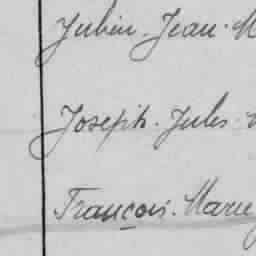 Julien. Jean. M
Joseph. Jules
François. Marie